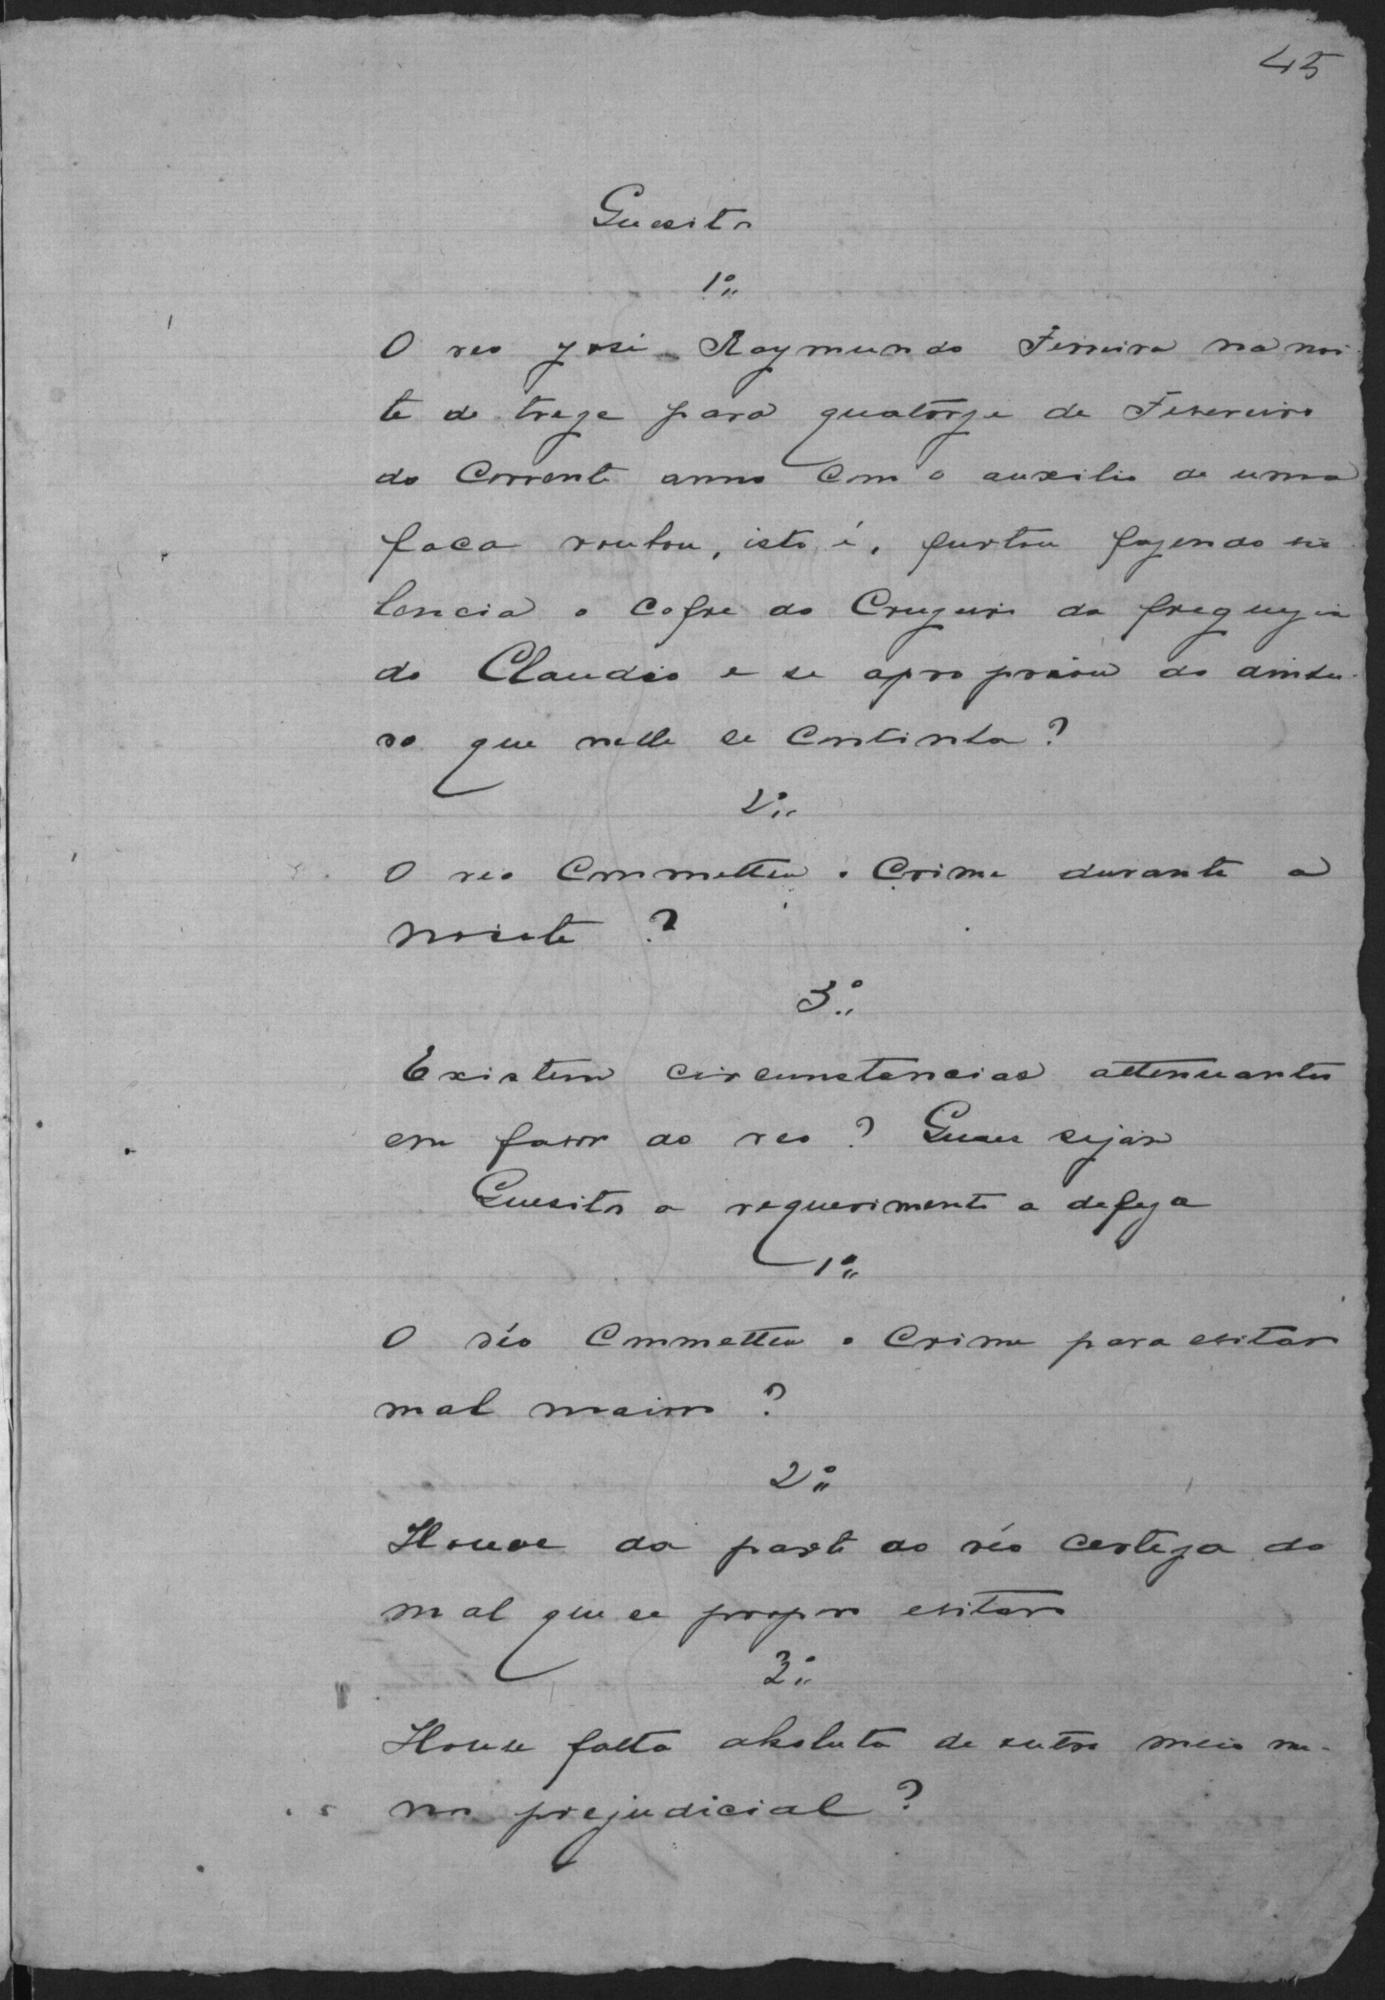 45
Quesitos
1º
O reo José Raymundo Ferreira na noi-
te de treze para quatorze de Fevereiro
do corrente anno com o auxilio de uma
faca roubou, isto é, furtou fazendo vio
lencia o cofre do Cruzeiro da freguezia
do Claudio e se apropriou do dinhei-
ro que nelle se continha?
2º
O reo commetteu o crime durante a
noite?
3º
Existem circumstancias attenuantes
em favor do reo? Quaes sejão
Quesitos a requerimento a defeza
1º
O réo commetteu o crime para evitar
mal maior?
2º
Houve da parte do réo certeza do
mal que se propos evitar
3º
Houve falta absoluta de outro meio me-
nos prejudicial?